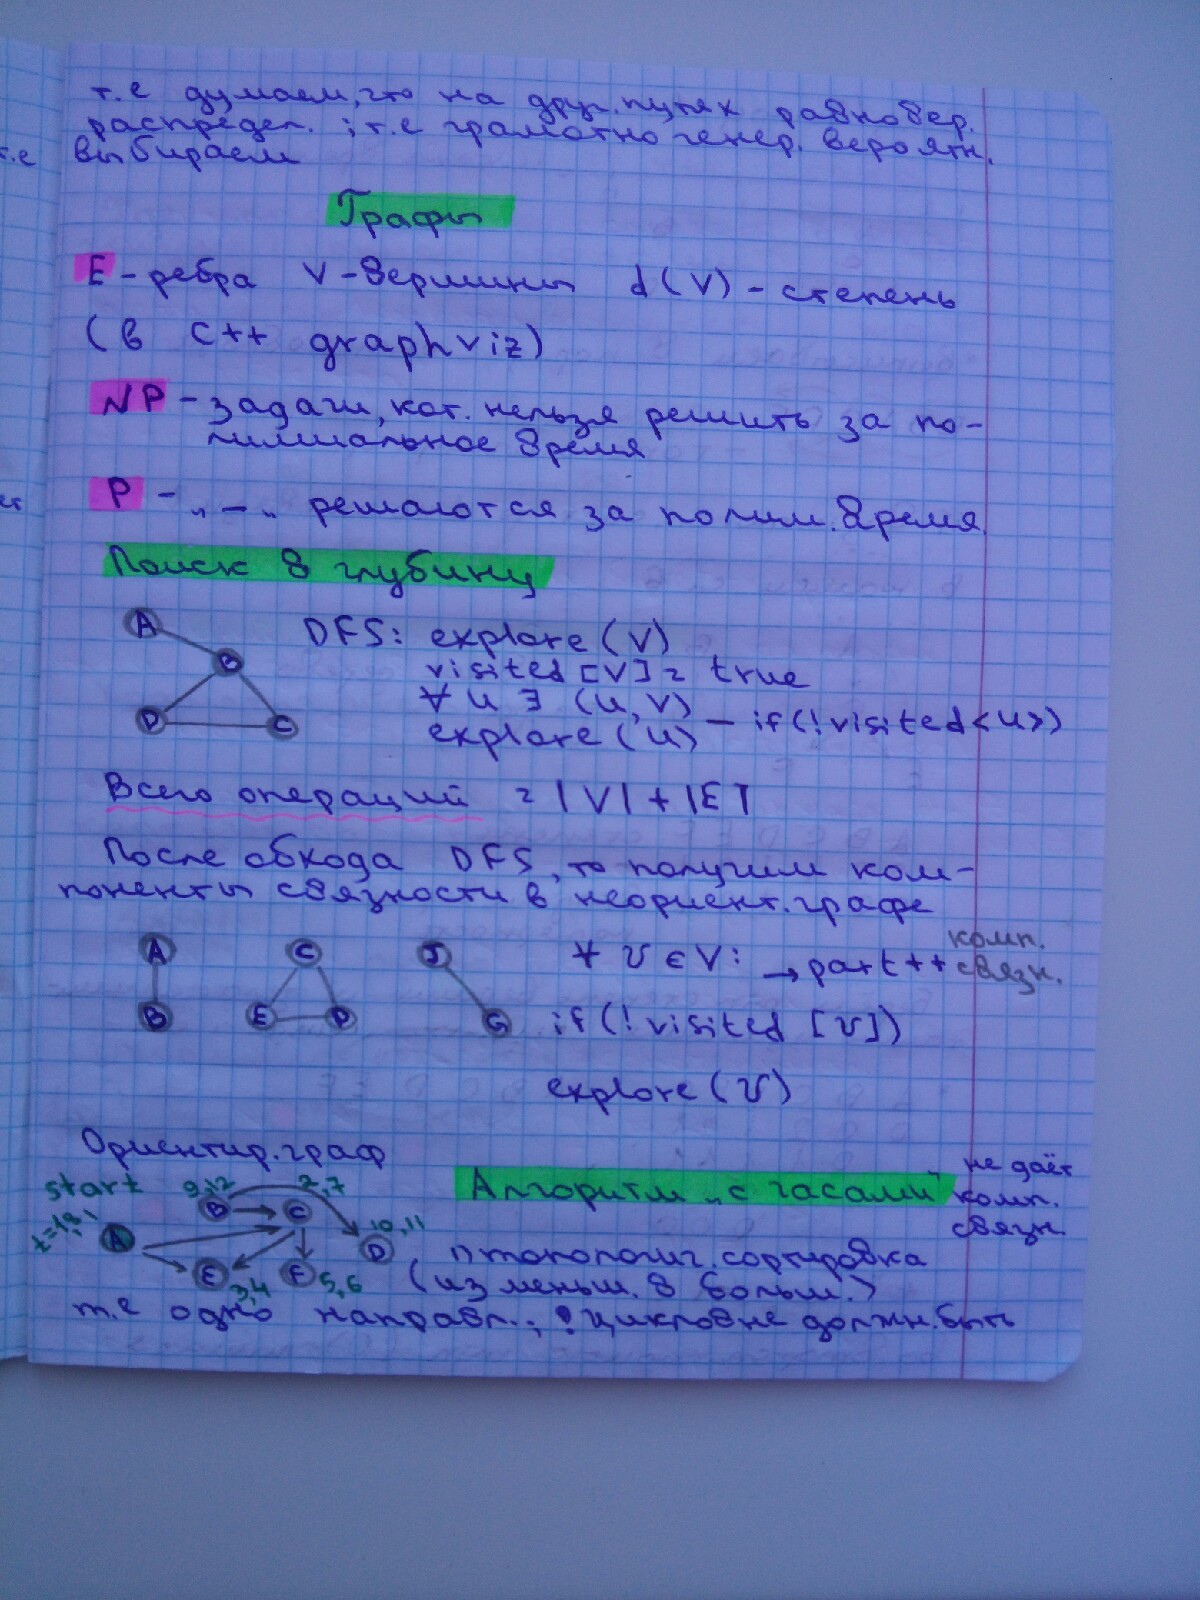 т.е думаем, что на друг. путях равновер.
распредел. ; т.е грамотно генер. вероятн.
выбираем
т.е
Графы
E - ребра V - вершины d(V) - степень
(в C++ graphviz)
NP - задачи, кот. нельзя решить за по-
лимиальное время
P - „ — „ решаются за полим. время
Поиск в глубину
A
B
D C
DFS: explore(V)
visited[V] = true
∀ u ∃ (u, V)
explore(u) — if(!visited<u>)
Всего операций = |V| + |E|
После обхода DFS, то получим ком-
поненты связности в неориент. графе
A C J
B E D G
∀ v ∈ V: → part++ комп. связн.
if(!visited [v])
explore(v)
Ориентир. граф
start 9,12 2,7
B C 10,11
A D
E 3,4 F 5,6
Алгоритм „с часами"
не даёт
комп.
связн.
топологич. сортировка
(из меньш. в больш.)
т.е одно направл.; ! Циклов не должн. быть